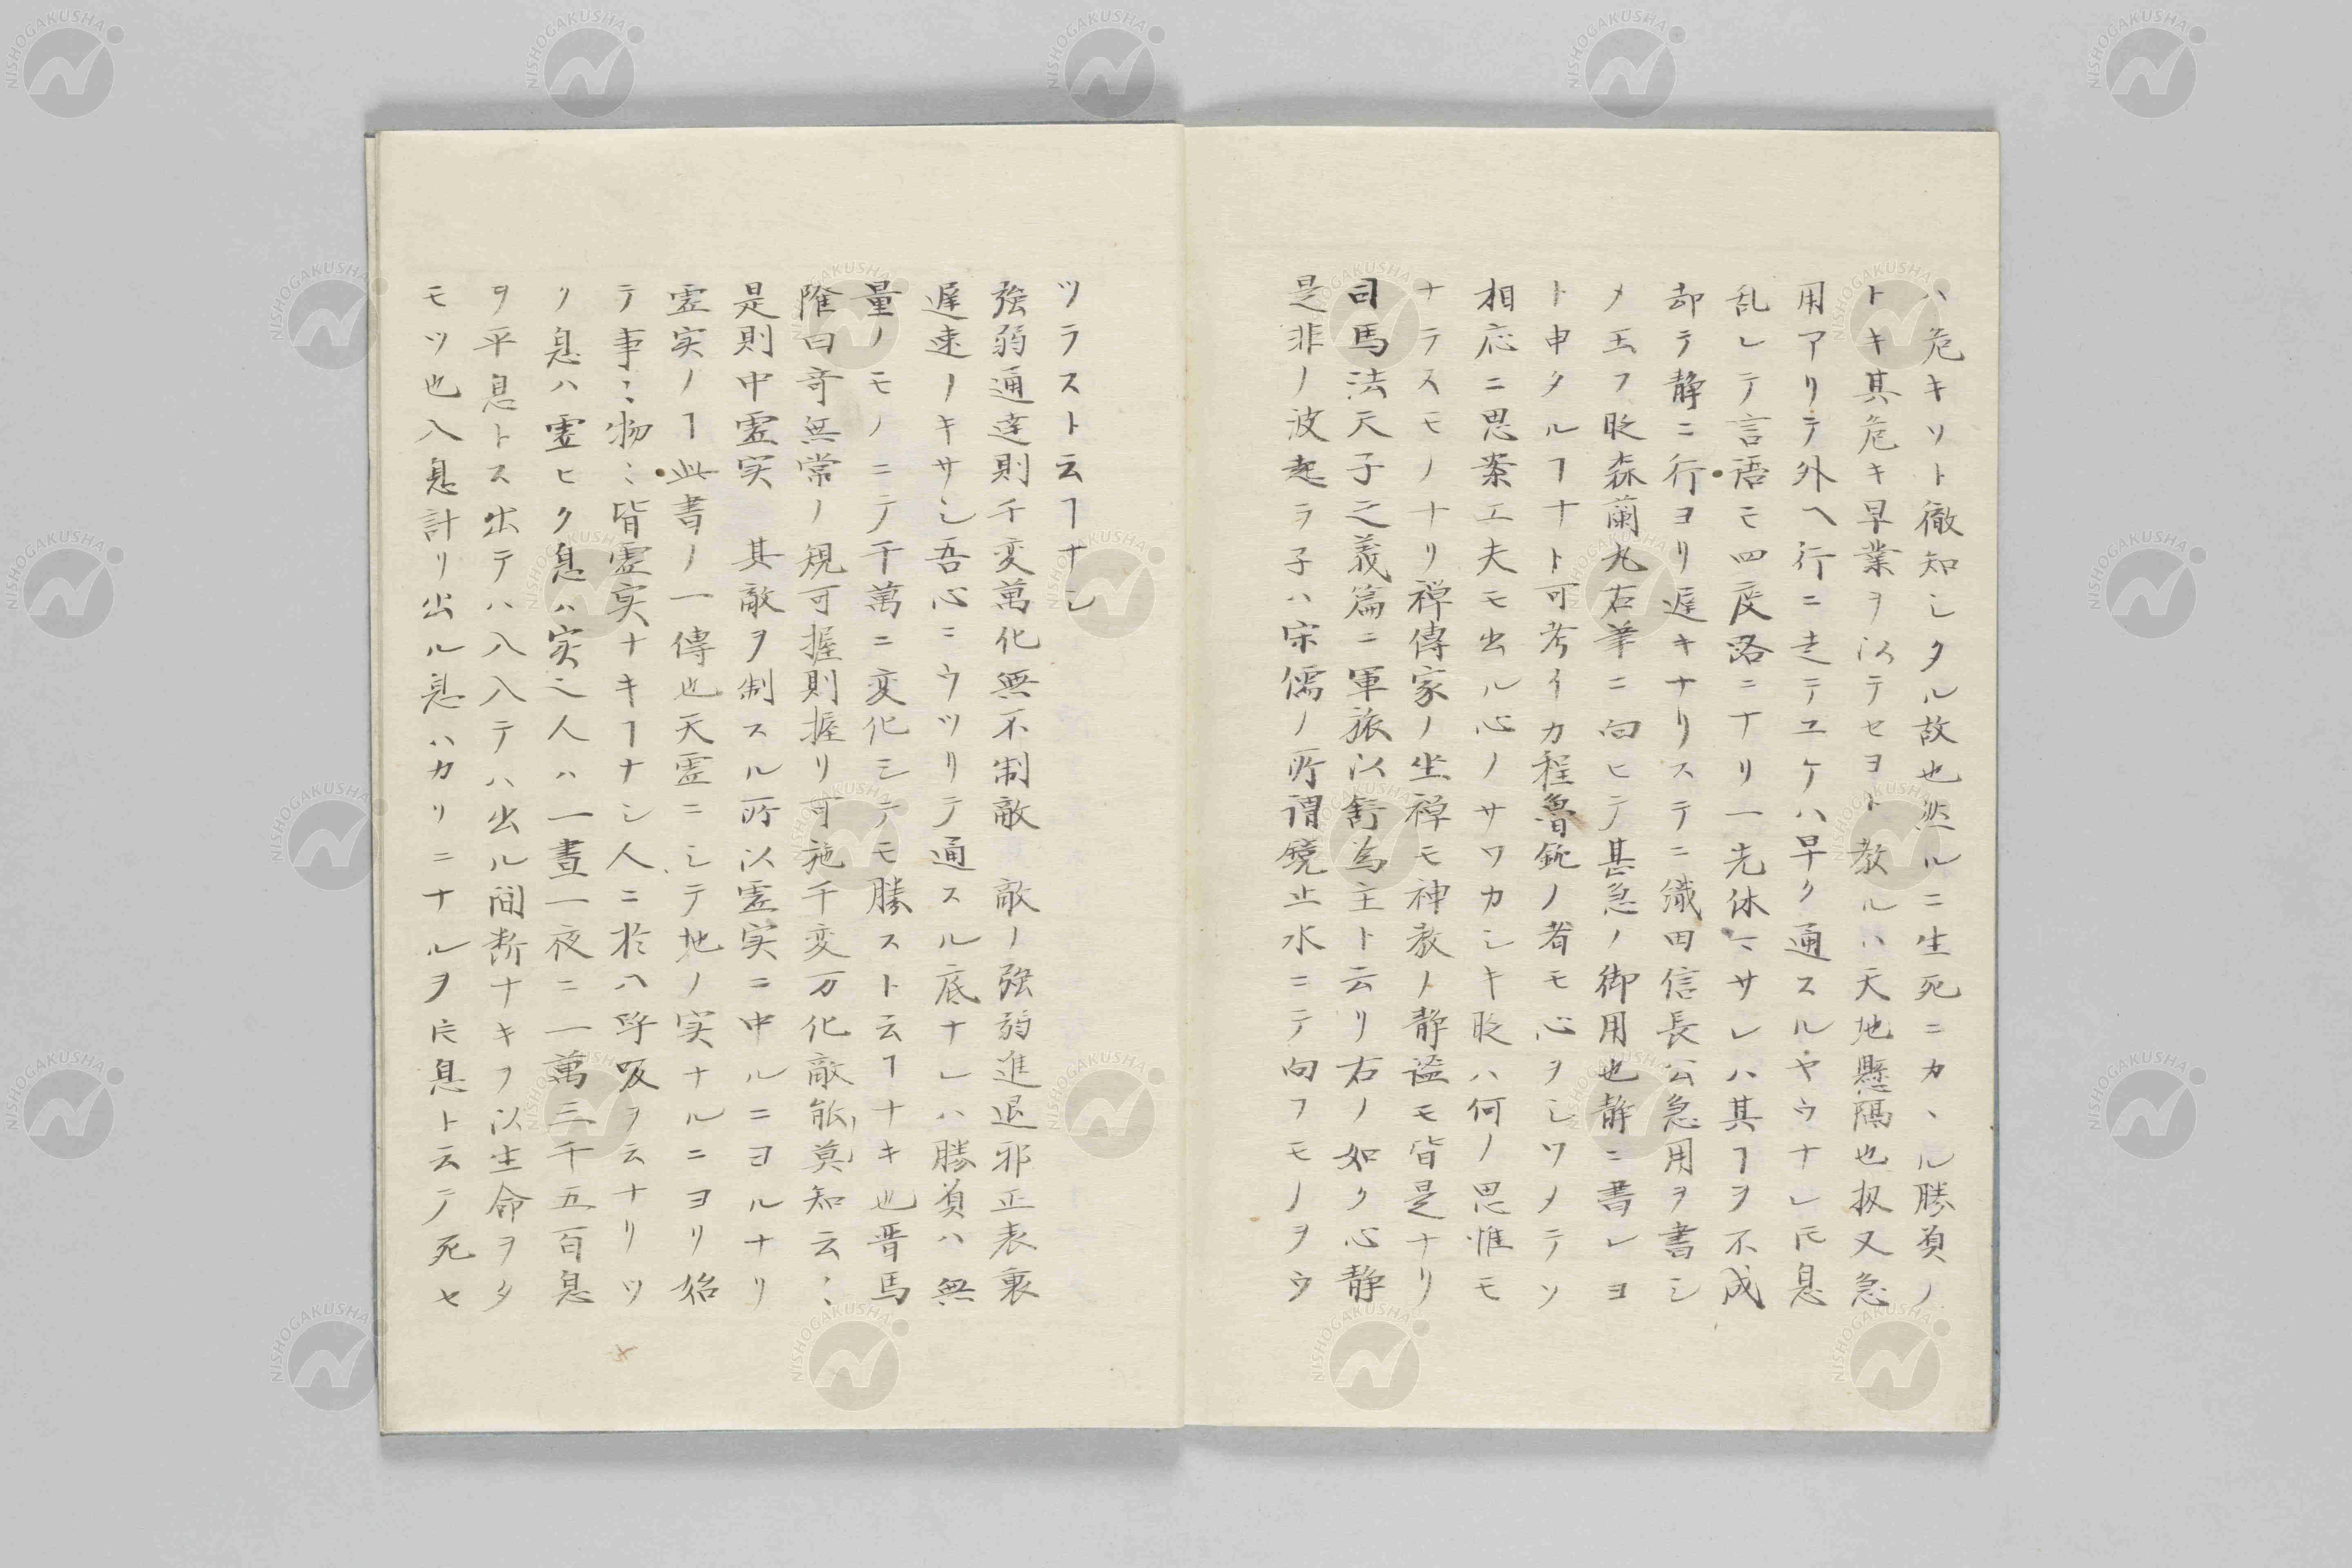 ハ危キリト徹知シタル故也然ルニ生死ニカヽル勝負ノ
トキ其危キ早業ヲ以テセヨト教ルハ天地懸隔也扨又急
用アリテ外ヘ行ニ走テユケハ早ク通スルヤウナレ𪜈息
乱レテ言語モ四度路ニナリ一先休マサレハ其ヿヲ不成
却テ静ニ行ヨリ遅キナリステニ織田信長公急用ヲ書シ
メ玉フ時森蘭丸右筆ニ向ヒテ甚急ノ御用也静ニ書レヨ
ト申タルヿナト可考イカ程魯鈍ノ者モ心ヲシツメテソ
相応ニ思案工夫モ出ル心ノサワカシキ時ハ何ノ思惟モ
ナラスモノナリ禅傳家ノ坐禅モ神教ノ静謐モ皆是ナリ
司馬法天子之義篇ニ軍旅以舒為主ト云リ右ノ如ク心静
是非ノ波起ラ子ハ宋儒ノ所謂鏡止水ニテ向フモノヲウ
ツラスト云ヿナシ
強弱通達則千変萬化無不制敵 敵ノ強弱進退邪正表裏
遅速ノキサシ吾心ニウツリテ通スル底ナレハ勝負ハ無
量ノモノニテ千萬ニ変化シテモ勝スト云ヿナキ也晋馬
隆曰奇無常ノ規可握則握リ可施千変万化敵能莫知云〻
是則中虚実 其敵ヲ制スル所以虚実ニ中ルニヨルナリ
虚実ノヿ此書ノ一傳也天虚ニシテ地ノ実ナルニヨリ始
テ事〻物〻皆虚実ナキヿナシ人ニ於ハ呼吸ヲ云ナリツ
ク息ハ虚ヒク息ハ実之人ハ一晝一夜ニ一萬三千五百息
ヲ平息トス出テハ入入テハ出ル間断ナキヲ以生命ヲタ
モツ也入息計リ出ル息ハカリニナルヲ片息ト云テ死セ